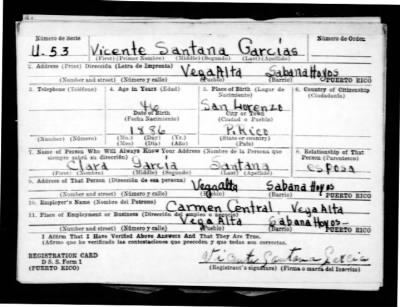 Número de Serie
Número de Orden
U.53 Vicente Santana Garcías
(First) (Primer Nombre) (Middle) (Segundo) (Last) (Apellido)
2. Address (Print) Dirección (Letra de Imprenta) Vega Alta Sabana Hoyos
(Number and street) (Número y calle) (Pueblo) (Barrio) PUERTO RICO
3. Telephone (Teléfono)
4. Age in Years (Edad)
5. Place of Birth (Lugar de Nacimiento)
6. Country of Citizenship (Ciudadanía)
46
San Lorenzo
Date of Birth
(Fecha Nacimiento)
City or Town
(Ciudad o Pueblo)
1886
P. Rico
(Number) (Número)
(Mo.) (Day) (Yr.)
(Mes) (Día) (Año)
(State or country)
(País)
7. Name of Person Who Will Always Know Your Address (Nombre de la Persona que siempre sabrá su dirección)
8. Relationship of That Person (Parentesco)
Clara García Santana esposa
(First) (Nombre) (Middle) (Segundo) (Last) (Apellido)
9. Address of That Person (Dirección de esa persona) Vega alta Sabana Hoyos
(Number and street) (Número y calle) (Pueblo) (Barrio) PUERTO RICO
10. Employer's Name (Nombre del Patrono) Carmen Central Vega Alta
11. Place of Employment or Business (Dirección del empleo o negocio) Vega Alta Sabana Hoyos
(Number and street) (Número y calle) (Pueblo) (Barrio) PUERTO RICO
I Affirm That I Have Verified Above Answers And That They Are True.
(Afirmo que he verificado las contestaciones que preceden y que todas son correctas.
REGISTRATION CARD
D S S. Form 1
(PUERTO RICO)
Vicente Santana García
(Registrant's signature) (Firma o marca del Inscrito)